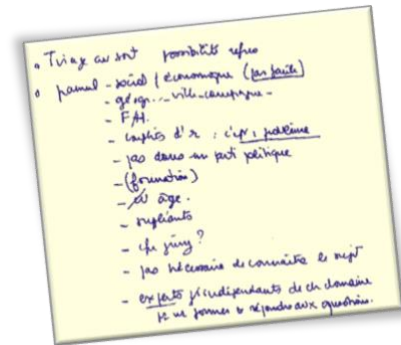 • Tirage au sort possibilité refus
• panel - social / économique (pas facile)
- géogr... ville-campagne -
- F/H.
- d'r : c'est 1 problème
- pas dans un parti politique
- (formation)
- âge.
- suppléants
- ch jury ?
- pas nécessaire de connaître le sujet
- experts indépendants de ch domaine
pr former & répondre aux questions.